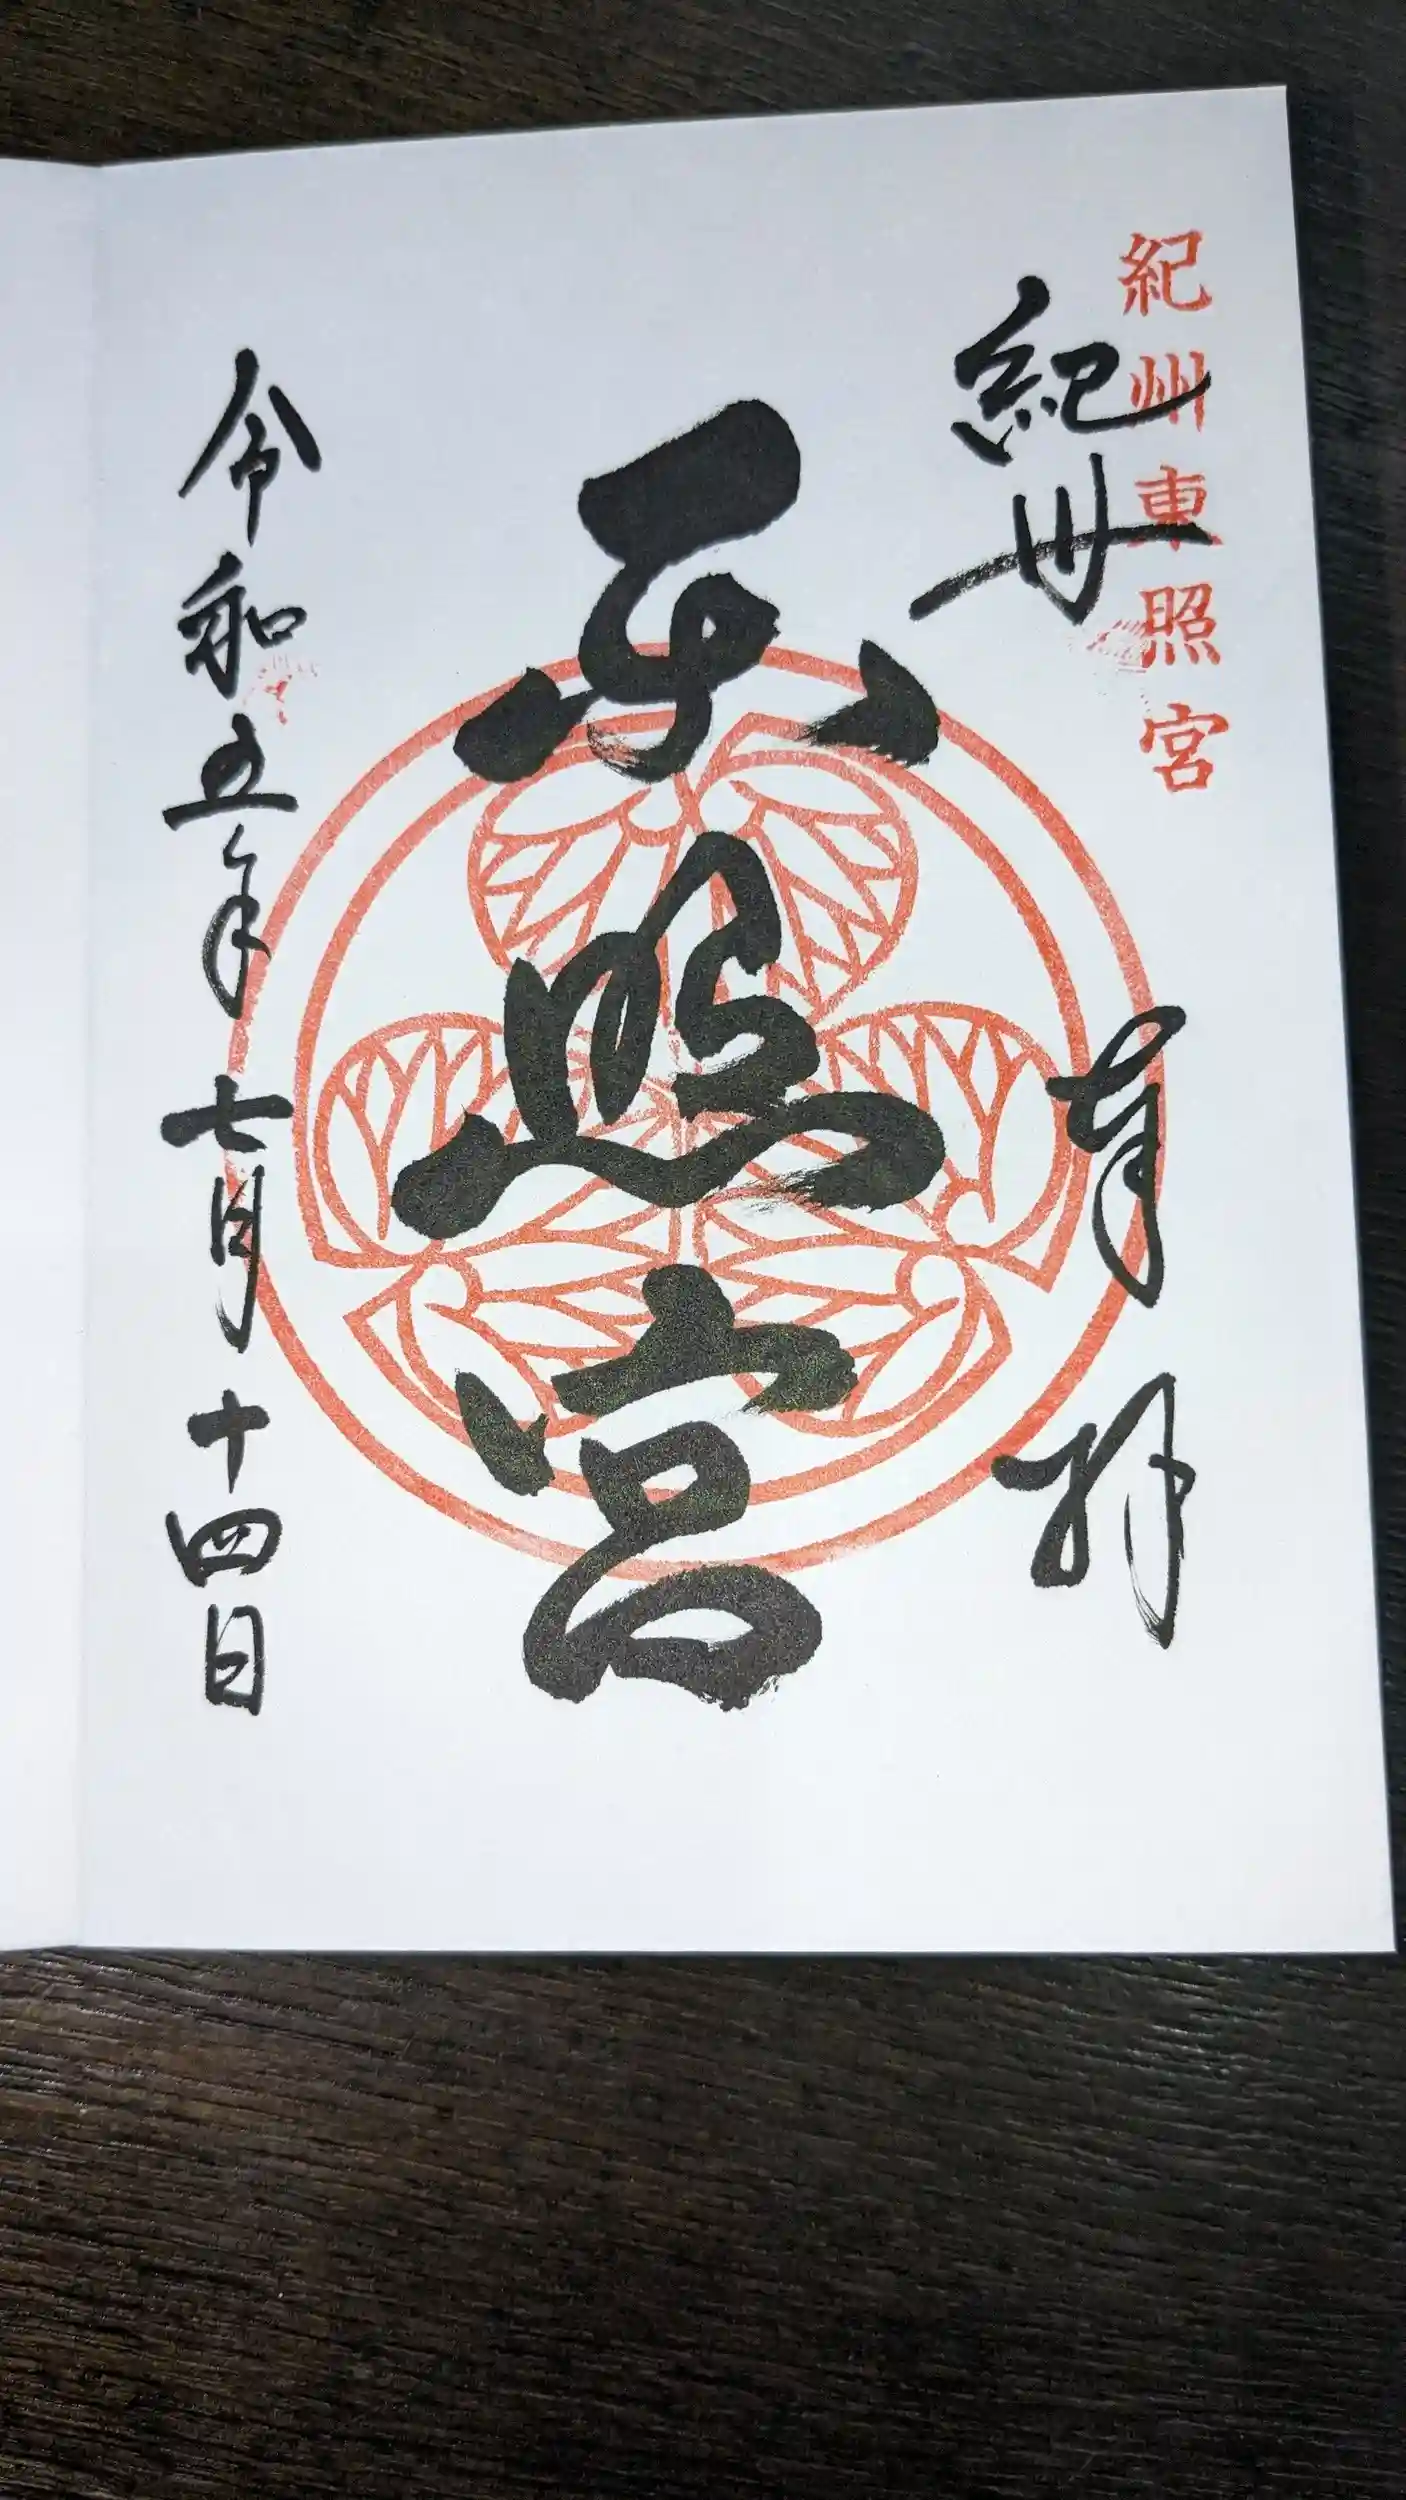 紀州東照宮
紀州
奉拝
東照宮
令和五年七月十四日